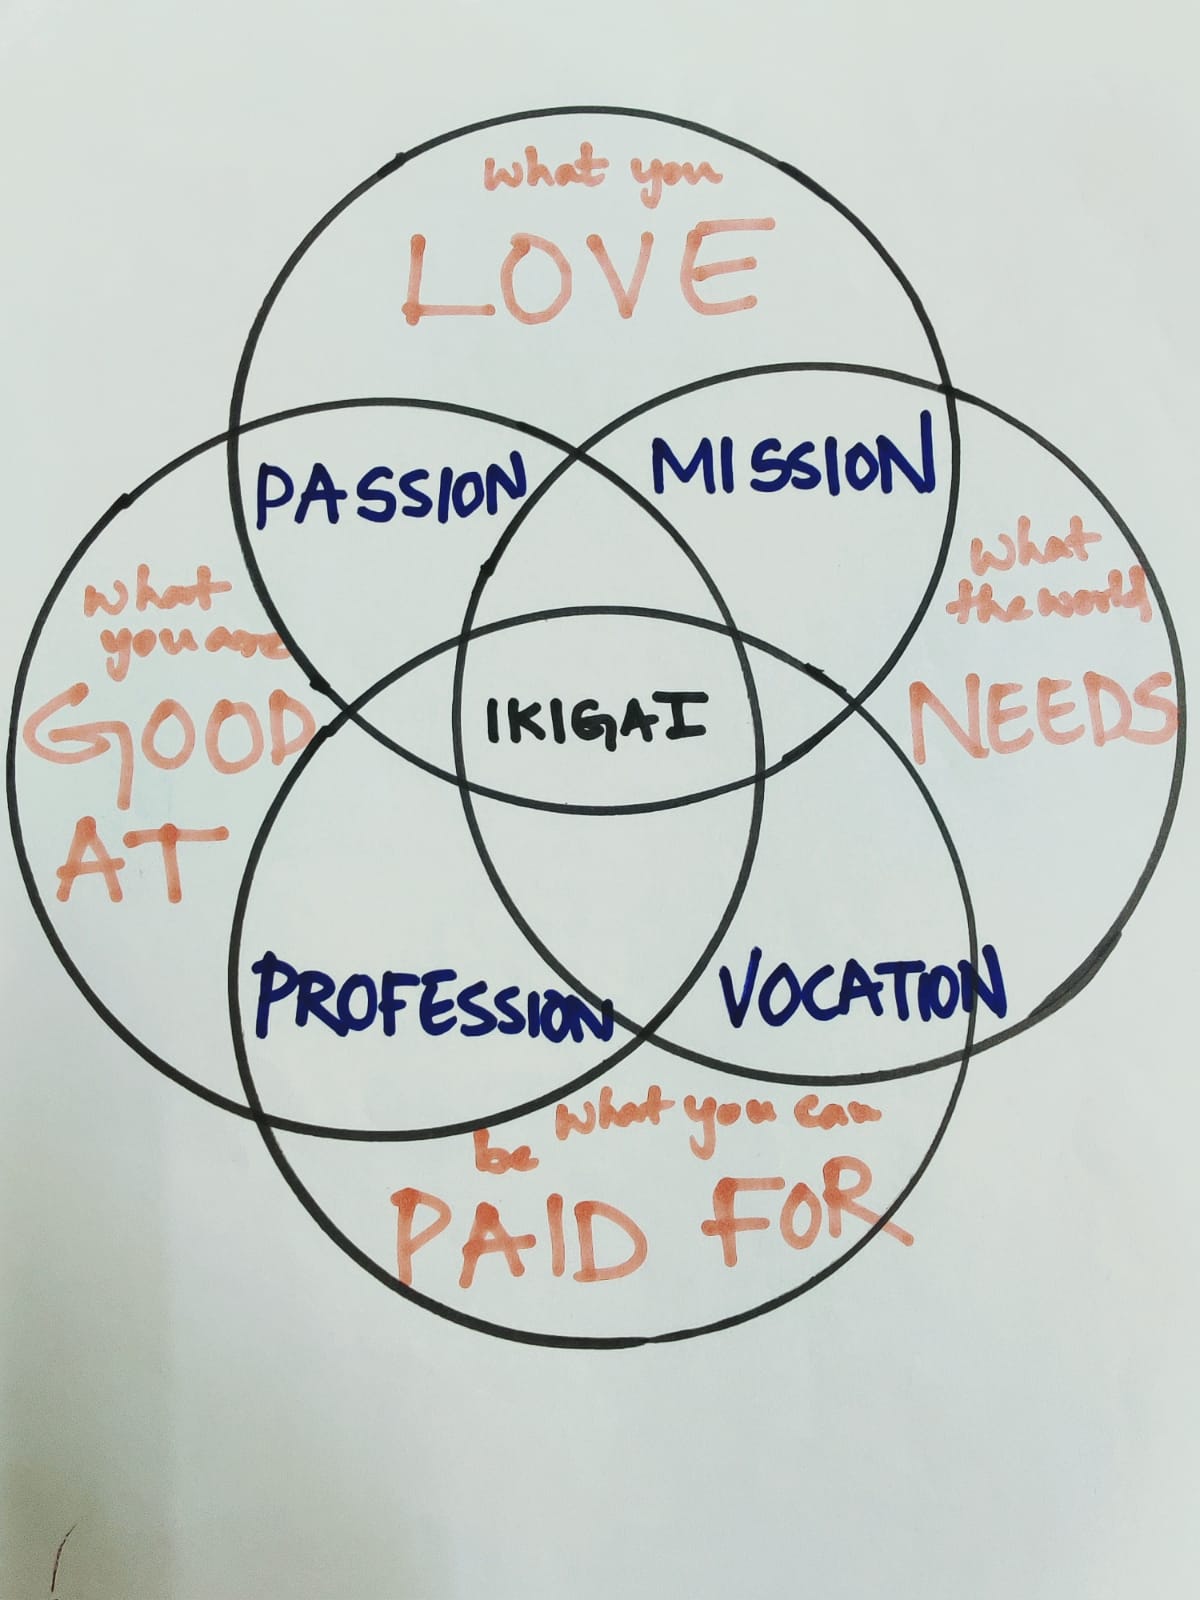 What you
LOVE
PASSION
MISSION
What
you are
GOOD
AT
What
the world
NEEDS
IKIGAI
PROFESSION
VOCATION
What you can
be
PAID FOR